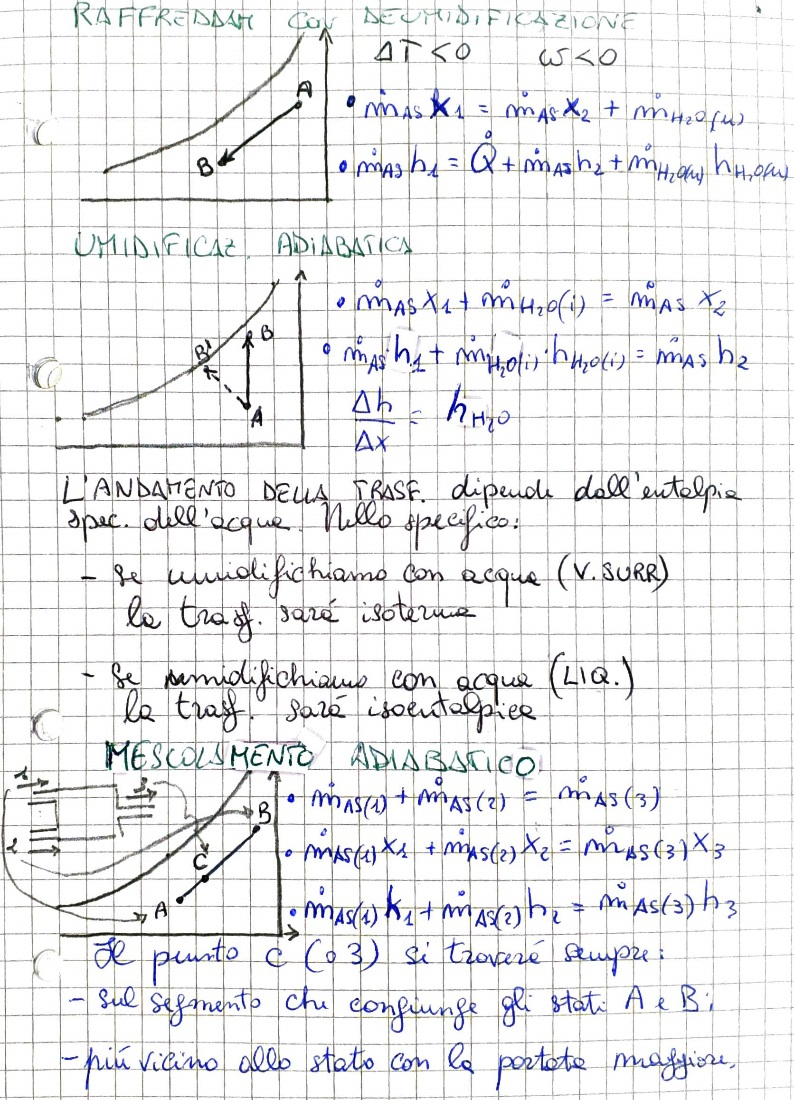 RAFFREDDAM con DEUMIDIFICAZIONE
ΔT<0 ω<0
A
B
• ṁAS X1 = ṁAS X2 + ṁH2O(u)
• ṁAS h1 = Q̇ + ṁAS h2 + ṁH2O(u) hH2O(u)
UMIDIFICAZ. ADIABATICA
B'
B
A
• ṁAS X1 + ṁH2O(i) = ṁAS X2
• ṁAS·h1 + ṁH2O(i)·hH2O(i) = ṁAS h2
Δh/Δx = hH2O
L'ANDAMENTO DELLA TRASF. dipende dall'entalpia
spec. dell'acqua. Nello specifico:
- Se umidifichiamo con acqua (V.SURR)
la trasf. sará isoterma
- Se umidifichiamo con acqua (LIQ.)
la trasf. sará isoentalpica
MESCOLAMENTO ADIABATICO
1
2
3
A
C
B
• ṁAS(1) + ṁAS(2) = ṁAS(3)
• ṁAS(1) X1 + ṁAS(2) X2 = ṁAS(3) X3
• ṁAS(1) h1 + ṁAS(2) h2 = ṁAS(3) h3
Il punto C (o 3) si troverá sempre:
- sul segmento che congiunge gli stati A e B;
- piú vicino allo stato con la portata maggiore.